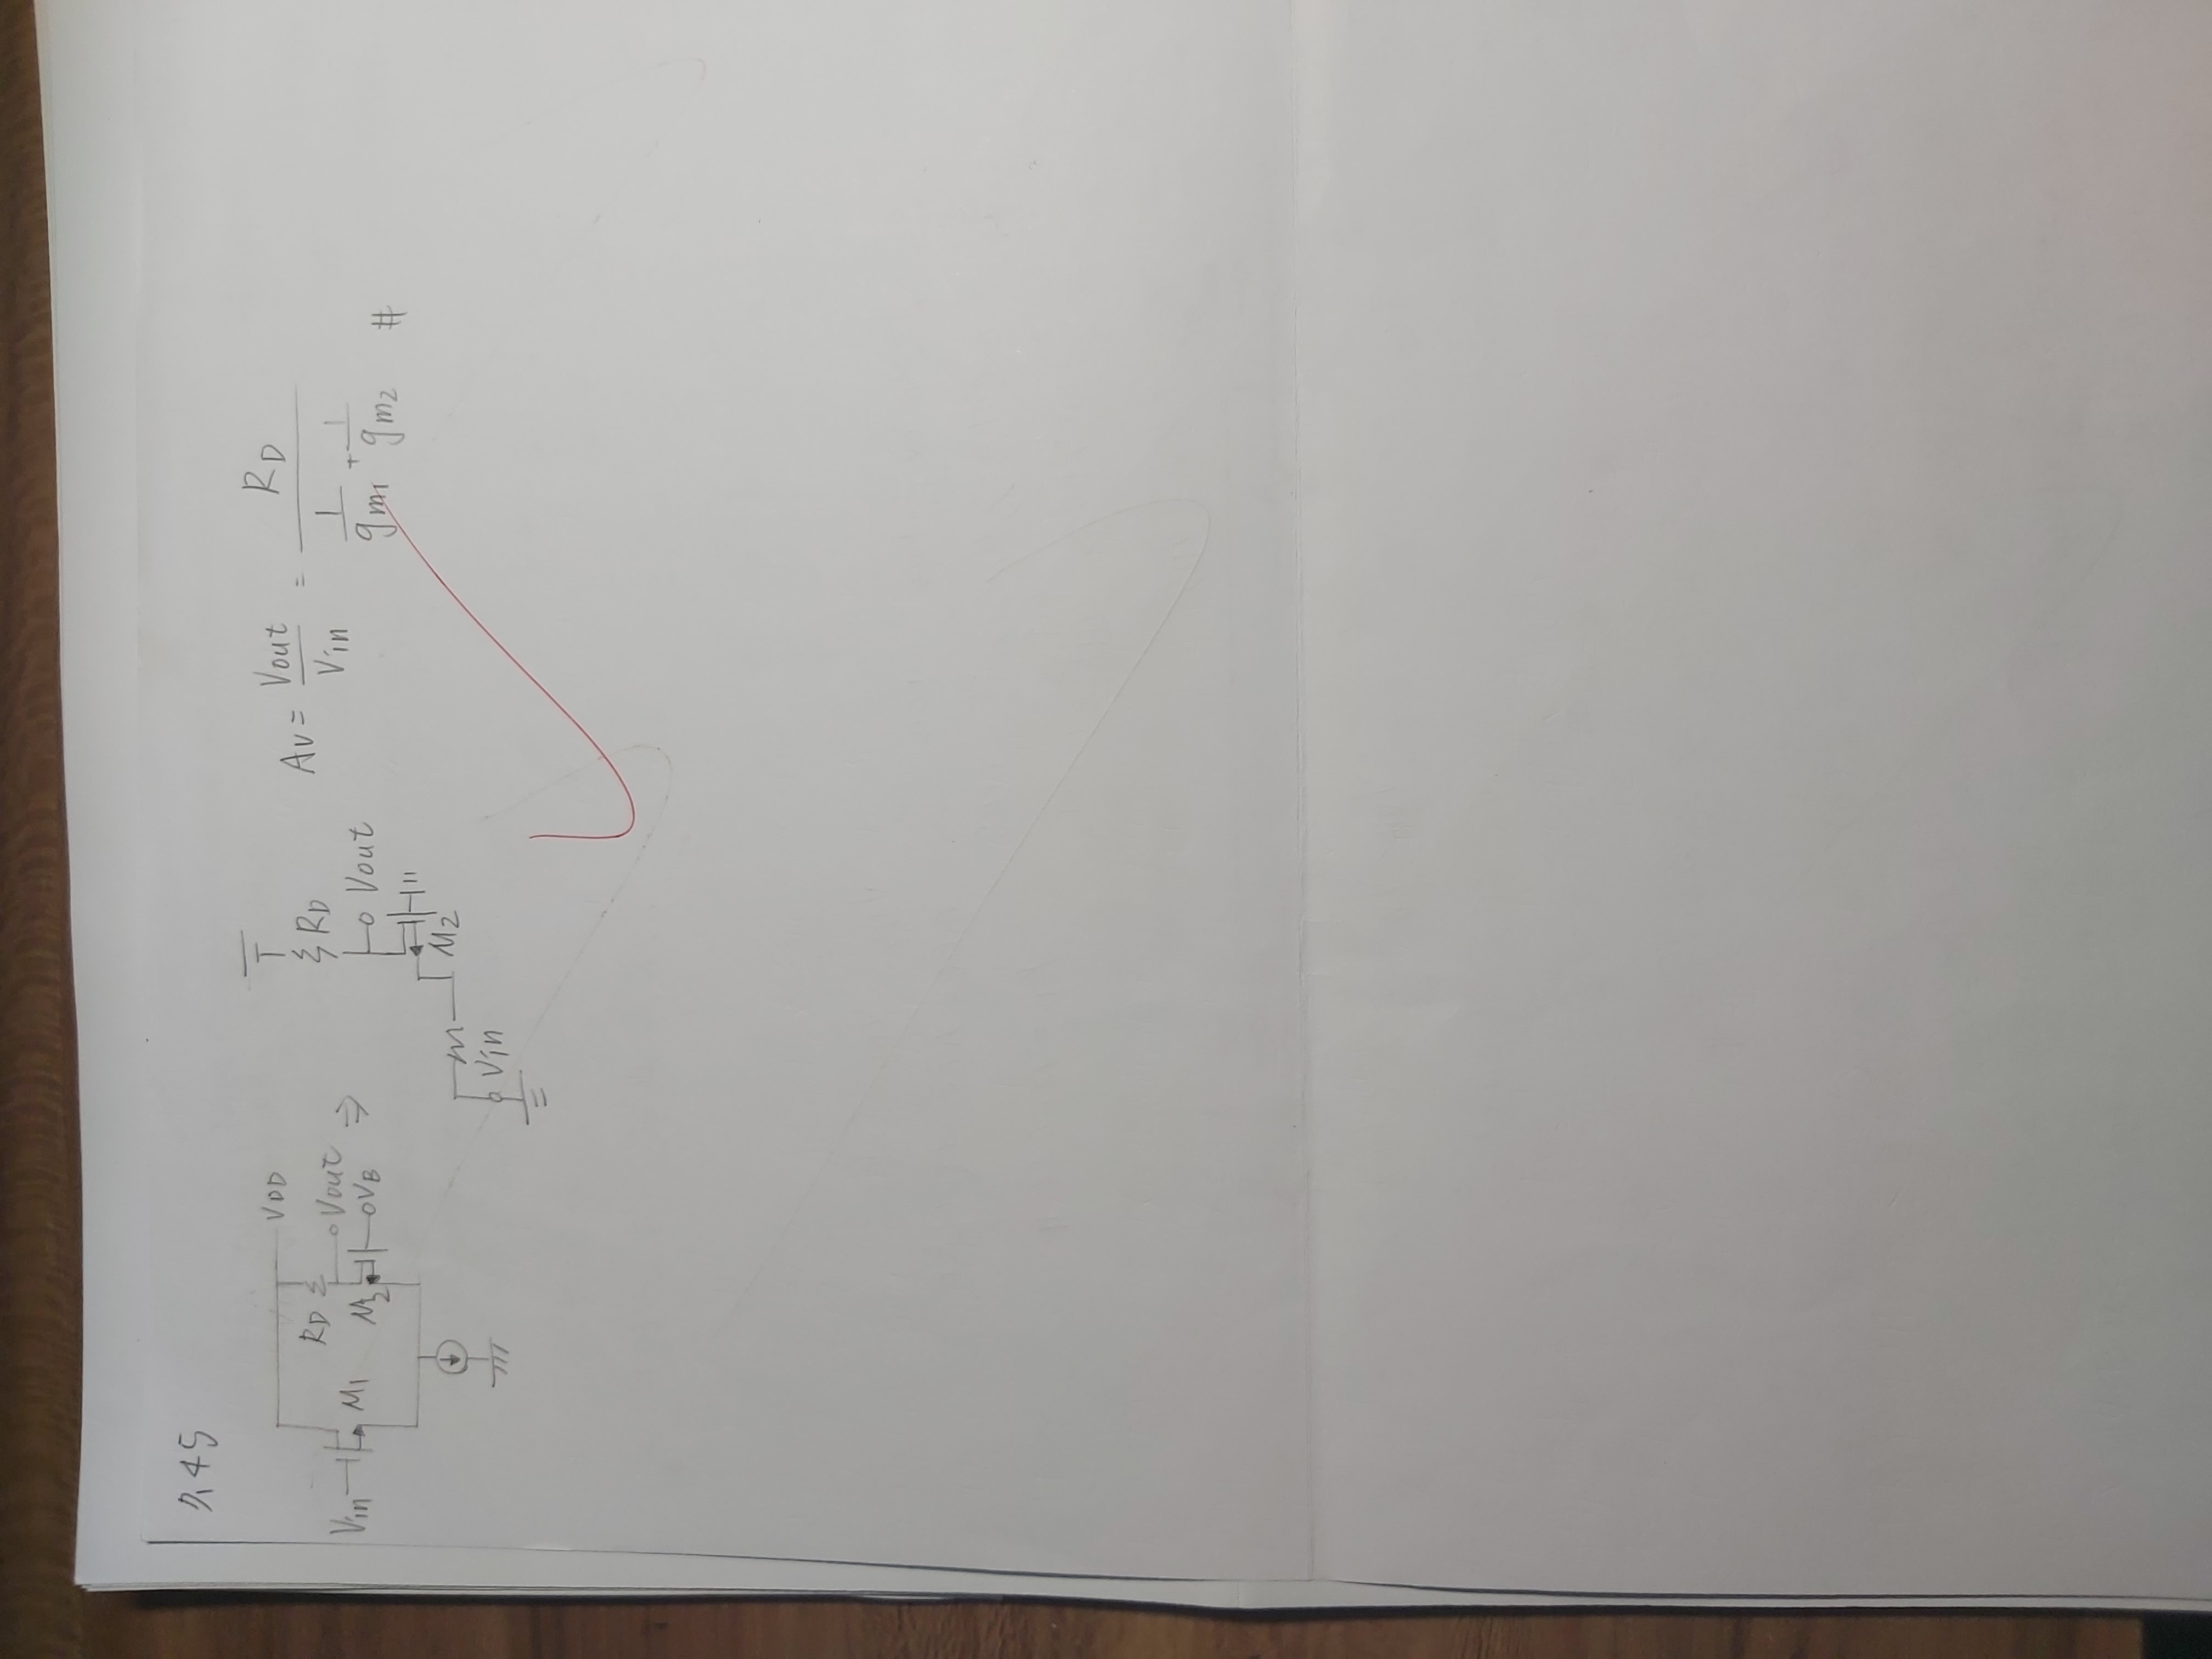 7.45
VDD
RD
Vout
Vin
M1
M2
VB
⇒
RD
Vout
M2
Vin
Av = Vout / Vin = RD / (1/gm1 + 1/gm2) #